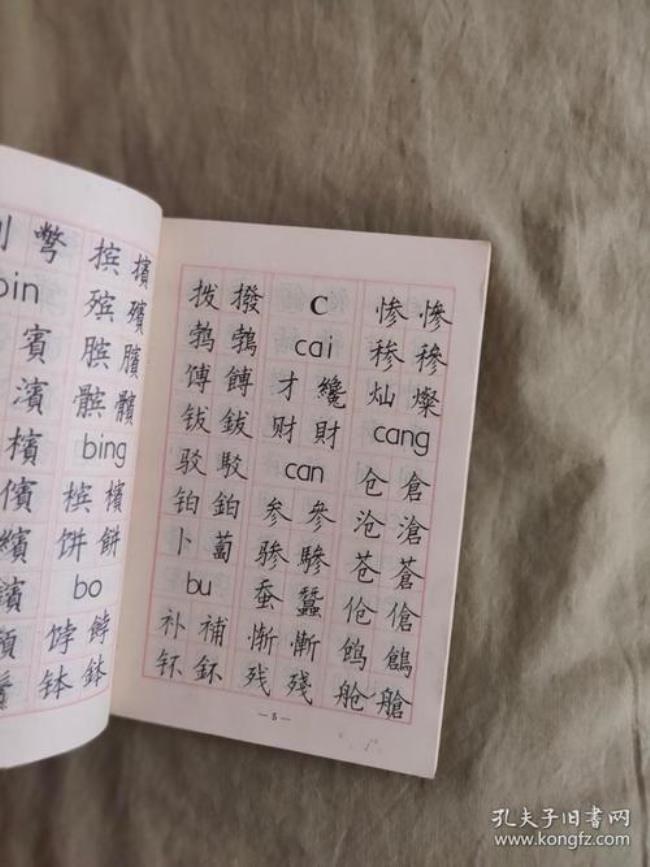 彆
bin
賓
濱
檳
儐
繽
摈 擯
殡 殯
膑 臏
髌 髕
bing
槟 檳
饼 餅
bo
饽 餑
钵 鉢
拨 撥
鹁 鵓
馎 餺
钹 鈸
驳 駁
铂 鉑
卜 蔔
bu
补 補
钚 鈈
C
cai
才 纔
财 財
can
参 參
骖 驂
蚕 蠶
惭 慚
残 殘
惨 慘
䅟 穇
灿 燦
cang
仓 倉
沧 滄
苍 蒼
伧 傖
鸧 鶬
舱 艙
—5—
孔夫子旧书网
www.kongfz.com